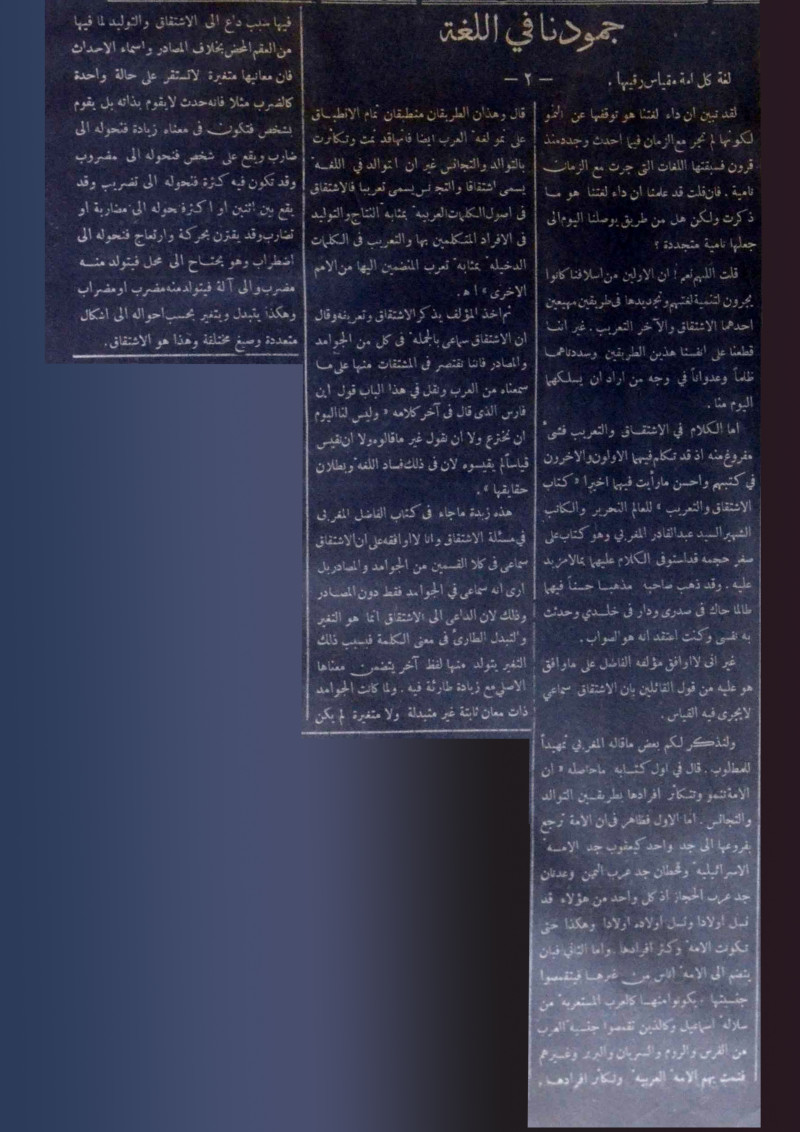 جمودنا في اللغة
— ٢ —
لغة كل امة مقياس رقيها .
لقد تبين ان داء لغتنا هو توقفها عن النمو
لكونها لم تجر مع الزمان فيما احدث وجدد منذ
قرون فسبقتها اللغات التي جرت مع الزمان
نامية . فان قلت قد علمنا ان داء لغتنا هو مــا
ذكرت ولكن هل من طريق يوصلنا اليوم الى
جعلها نامية متجددة ؟
قلت اللهم نعم ! ان الاولين من اسلافنا كانوا
يجرون لتنمية لغتهم وتجديدها في طريقين مهيعين
احدهما الاشتقاق والآخر التعريب . غير اننــا
قطعنا على انفسنا هذين الطريقين وسددناهمــا
ظلماً وعدواناً في وجه من اراد ان يسلـكهما
اليوم منا .
اما الكلام في الاشتقــاق والتعريب فشئ
مفروغ منه اذ قد تكلم فيهما الاولون والآخرون
في كتبهم واحسن مارأيت فيهما اخيرا « كتاب
الاشتقاق والتعريب » للعالم النحرير والكاتب
الشهير السيد عبدالقادر المغربي وهو كتاب على
صغر حجمه قداستوفى الكلام عليهما بمالامزيد
عليه . وقد ذهب صاحبنا مذهبــا حسناً فيهما
طالما حاك في صدرى ودار فى خلــدي وحدثت
به نفسى وكنت اعتقد انه هو الصواب .
غير انى لااوافق مؤلفه الفاضل على ماوافق
هو عليه من قول القائلين بان الاشتقاق سماعي
لايجرى فيه القياس .
ولنذكر لكم بعض ماقاله المغربي تمهيداً
للمطلوب . قال في اول كتــابه ماحاصله « ان
الامة تنمو وتتكاثر افرادها بطريقــين التوالد
والتجانس . اما الاول فظاهر فى ان الامة ترجع
بفروعها الى جد واحد كيعقوب جد الامــة
الاسرائيلية وقحطان جد عرب اليمن وعدنان
جد عرب الحجاز اذ كل واحد من هؤلاء قد
نسل اولادا ونسل اولاده اولادا وهكذا حتى
تكونت الامة وكثر افرادها . واما الثاني فبان
ينضم الى الامة اناس من غيرهــا فيتقمصوا
جنسيتها ويكونوا منهــا كالعرب المستعربة من
سلالة اسماعيل وكالذين تقمصوا جنسية العرب
من الفرس والروم والسريان والبربر وغــيرهم
فنمت بهم الامة العربية وتكاثر افرادهــا .
قال وهذان الطريقان منطبقان تمام الانطبــاق
على نمو لغة العرب ايضا فانها قد نمت وتكاثرت
بالتوالد والتجانس غير ان التوالد في اللغــة
يسمى اشتقاقا والتجانس يسمى تعريبا فالاشتقاق
في اصول الكلمات العربية بمثابة النتاج والتوليد
فى الافراد المتكلمين بها والتعريب فى الكلمات
الدخيلة بمثابة تعرب المنضمين اليها من الامم
الاخرى » ا ه .
ثم اخذ المؤلف يذكر الاشتقاق وتعريفه وقال
ان الاشتقاق سماعي بالجملة في كل من الجوامد
والمصادر فاننا نقتصر فى المشتقات منها على مــا
سمعناه من العرب ونقل في هذا الباب قول ابن
فارس الذى قال فى آخر كلامه « وليس لنا اليوم
ان نخترع ولا ان نقول غير ماقالوه ولا ان نقيس
قياساً لم يقيسوه لان فى ذلك فساد اللغة وبطلان
حقايقها » .
هذه زبدة ماجاء فى كتاب الفاضل المغربى
في مسئلة الاشتقاق وانا لااوافقه على ان الاشتقاق
سماعى فى كلا القسمين من الجوامد والمصادر بل
ارى انه سماعى في الجوامد فقط دون المصــادر
وذلك لان الداعى الى الاشتقاق انما هو التغير
والتبدل الطارئ فى معنى الكلمة فبسبب ذلك
التغير يتولد منها لفظ آخر يتضمن معناها
الاصلي مع زيادة طارئة فيه . ولما كانت الجوامد
ذات معان ثابتة غير متبدلة ولا متغيرة لم يكن
فيها سبب داع الى الاشتقاق والتوليد لما فيها
من العقم المحض بخلاف المصادر واسماء الاحداث
فان معانيها متغيرة لاتستقر على حالة واحدة
كالضرب مثلا فانه حدث لايقوم بذاته بل يقوم
بشخص فتكون فى معناه زيادة فنحوله الى
ضارب ويقع على شخص فنحوله الى مضروب
وقد تكون فيه كثرة فنحوله الى تضريب وقد
يقع بين اثنين او اكثر فنحوله الى مضاربة او
تضارب وقد يقترن بحركة وارتعاج فنحوله الى
اضطراب وهو يحتــاج الى محل فيتولد منــه
مضرب والى آلة فيتولد منه مضرب او مضراب
وهكذا يتبدل ويتغير بحسب احواله الى اشكال
متعددة وصيغ مختلفة وهذا هو الاشتقاق .